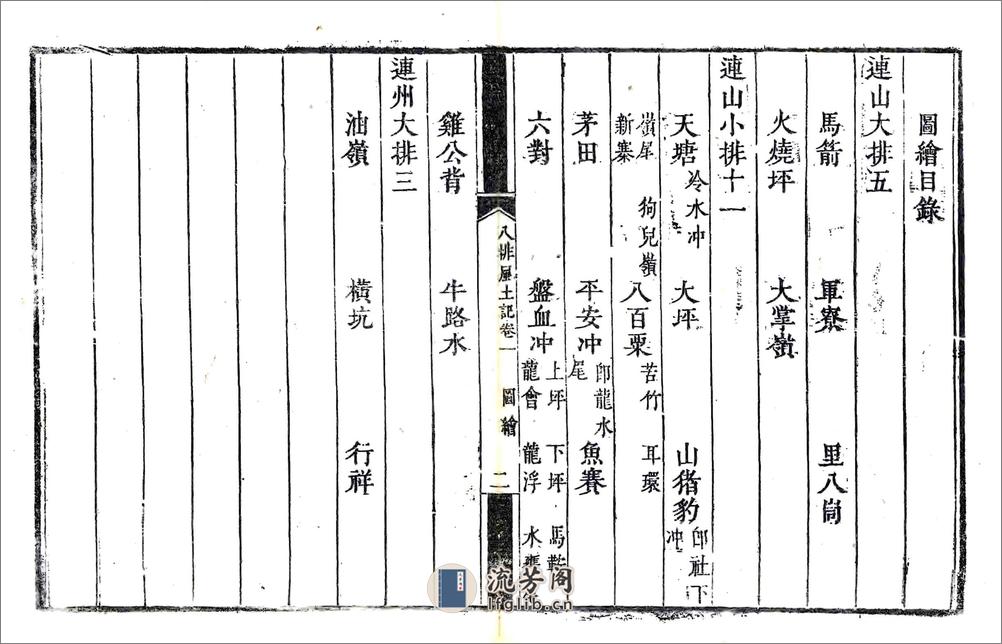 圖繪目錄
連山大排五
馬箭 軍寮 里八峝
火燒坪 大掌嶺
連山小排十一
天塘 冷水冲 大坪 山猪豹 卽社下冲
嶺尾 狗兒嶺 新寨 八百粟 苦竹 耳環
茅田 平安冲 卽龍水尾 魚賽
六對 盤血冲 上坪 下坪 馬鞍 龍會 龍浮 水
八排風土記卷一 圖繪 二
雞公背 牛路水
連州大排三
油嶺 橫坑 行祥
流芳阁
lfglib.cn